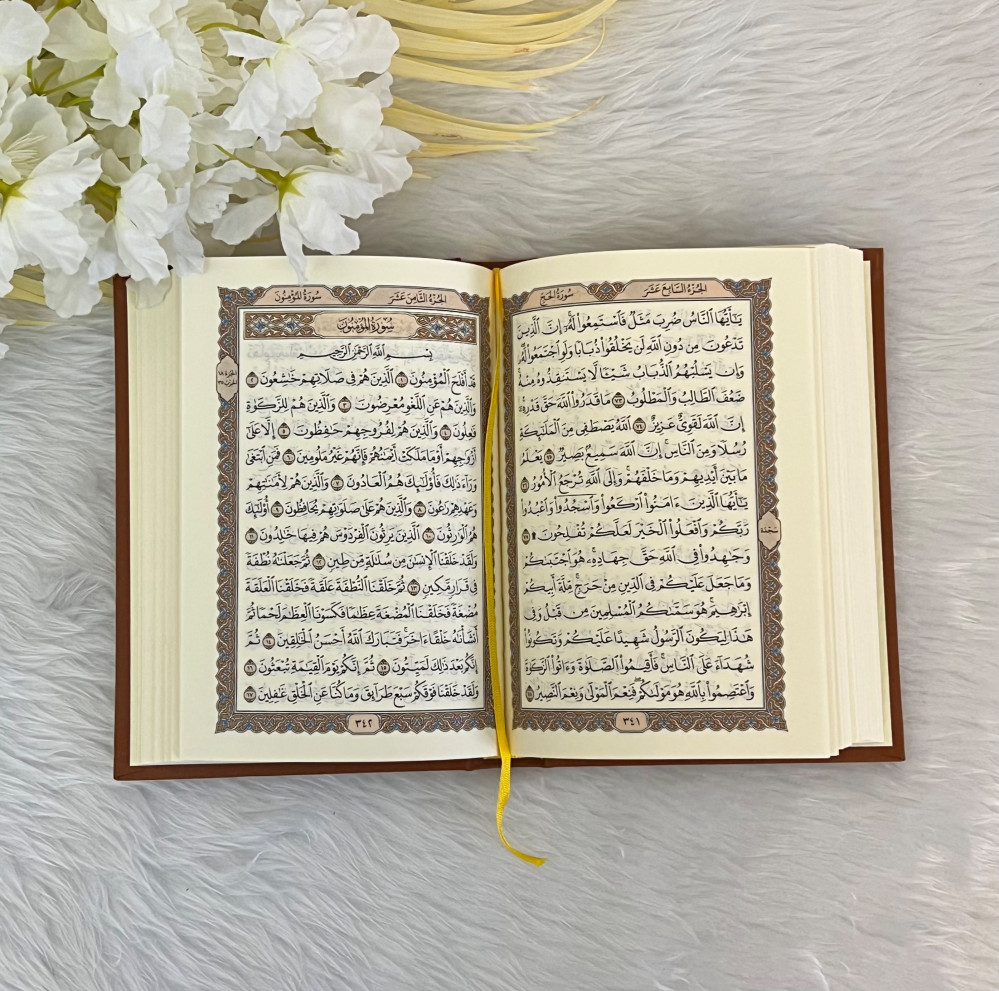 الجزء السابع عشر
سورة الحج
يَٰٓأَيُّهَا ٱلنَّاسُ ضُرِبَ مَثَلٌ فَٱسْتَمِعُوا۟ لَهُۥٓ إِنَّ ٱلَّذِينَ
تَدْعُونَ مِن دُونِ ٱللَّهِ لَن يَخْلُقُوا۟ ذُبَابًا وَلَوِ ٱجْتَمَعُوا۟ لَهُۥ
وَإِن يَسْلُبْهُمُ ٱلذُّبَابُ شَيْـًٔا لَّا يَسْتَنقِذُوهُ مِنْهُ
ضَعُفَ ٱلطَّالِبُ وَٱلْمَطْلُوبُ ٧٣ مَا قَدَرُوا۟ ٱللَّهَ حَقَّ قَدْرِهِۦٓ
إِنَّ ٱللَّهَ لَقَوِىٌّ عَزِيزٌ ٧٤ ٱللَّهُ يَصْطَفِى مِنَ ٱلْمَلَٰٓئِكَةِ
رُسُلًا وَمِنَ ٱلنَّاسِ إِنَّ ٱللَّهَ سَمِيعٌۢ بَصِيرٌ ٧٥ يَعْلَمُ
مَا بَيْنَ أَيْدِيهِمْ وَمَا خَلْفَهُمْ وَإِلَى ٱللَّهِ تُرْجَعُ ٱلْأُمُورُ ٧٦
يَٰٓأَيُّهَا ٱلَّذِينَ ءَامَنُوا۟ ٱرْكَعُوا۟ وَٱسْجُدُوا۟ وَٱعْبُدُوا۟
رَبَّكُمْ وَٱفْعَلُوا۟ ٱلْخَيْرَ لَعَلَّكُمْ تُفْلِحُونَ ۩ ٧٧
سجدة
وَجَٰهِدُوا۟ فِى ٱللَّهِ حَقَّ جِهَادِهِۦ هُوَ ٱجْتَبَىٰكُمْ
وَمَا جَعَلَ عَلَيْكُمْ فِى ٱلدِّينِ مِنْ حَرَجٍ مِّلَّةَ أَبِيكُمْ
إِبْرَٰهِيمَ هُوَ سَمَّىٰكُمُ ٱلْمُسْلِمِينَ مِن قَبْلُ وَفِى
هَٰذَا لِيَكُونَ ٱلرَّسُولُ شَهِيدًا عَلَيْكُمْ وَتَكُونُوا۟
شُهَدَآءَ عَلَى ٱلنَّاسِ فَأَقِيمُوا۟ ٱلصَّلَوٰةَ وَءَاتُوا۟ ٱلزَّكَوٰةَ
وَٱعْتَصِمُوا۟ بِٱللَّهِ هُوَ مَوْلَىٰكُمْ فَنِعْمَ ٱلْمَوْلَىٰ وَنِعْمَ ٱلنَّصِيرُ ٧٨
٣٤١
الجزء الثامن عشر
سورة المؤمنون
سورة المؤمنون
بِسْمِ ٱللَّهِ ٱلرَّحْمَٰنِ ٱلرَّحِيمِ
قَدْ أَفْلَحَ ٱلْمُؤْمِنُونَ ١ ٱلَّذِينَ هُمْ فِى صَلَاتِهِمْ خَٰشِعُونَ ٢
وَٱلَّذِينَ هُمْ عَنِ ٱللَّغْوِ مُعْرِضُونَ ٣ وَٱلَّذِينَ هُمْ لِلزَّكَوٰةِ
فَٰعِلُونَ ٤ وَٱلَّذِينَ هُمْ لِفُرُوجِهِمْ حَٰفِظُونَ ٥ إِلَّا عَلَىٰٓ
أَزْوَٰجِهِمْ أَوْ مَا مَلَكَتْ أَيْمَٰنُهُمْ فَإِنَّهُمْ غَيْرُ مَلُومِينَ ٦ فَمَنِ ٱبْتَغَىٰ
وَرَآءَ ذَٰلِكَ فَأُو۟لَٰٓئِكَ هُمُ ٱلْعَادُونَ ٧ وَٱلَّذِينَ هُمْ لِأَمَٰنَٰتِهِمْ
وَعَهْدِهِمْ رَٰعُونَ ٨ وَٱلَّذِينَ هُمْ عَلَىٰ صَلَوَٰتِهِمْ يُحَافِظُونَ ٩ أُو۟لَٰٓئِكَ
هُمُ ٱلْوَٰرِثُونَ ١٠ ٱلَّذِينَ يَرِثُونَ ٱلْفِرْدَوْسَ هُمْ فِيهَا خَٰلِدُونَ ١١
وَلَقَدْ خَلَقْنَا ٱلْإِنسَٰنَ مِن سُلَٰلَةٍ مِّن طِينٍ ١٢ ثُمَّ جَعَلْنَٰهُ نُطْفَةً
فِى قَرَارٍ مَّكِينٍ ١٣ ثُمَّ خَلَقْنَا ٱلنُّطْفَةَ عَلَقَةً فَخَلَقْنَا ٱلْعَلَقَةَ
مُضْغَةً فَخَلَقْنَا ٱلْمُضْغَةَ عِظَٰمًا فَكَسَوْنَا ٱلْعِظَٰمَ لَحْمًا ثُمَّ
أَنشَأْنَٰهُ خَلْقًا ءَاخَرَ فَتَبَارَكَ ٱللَّهُ أَحْسَنُ ٱلْخَٰلِقِينَ ١٤ ثُمَّ
إِنَّكُم بَعْدَ ذَٰلِكَ لَمَيِّتُونَ ١٥ ثُمَّ إِنَّكُمْ يَوْمَ ٱلْقِيَٰمَةِ تُبْعَثُونَ ١٦
وَلَقَدْ خَلَقْنَا فَوْقَكُمْ سَبْعَ طَرَآئِقَ وَمَا كُنَّا عَنِ ٱلْخَلْقِ غَٰفِلِينَ ١٧
٣٤٢